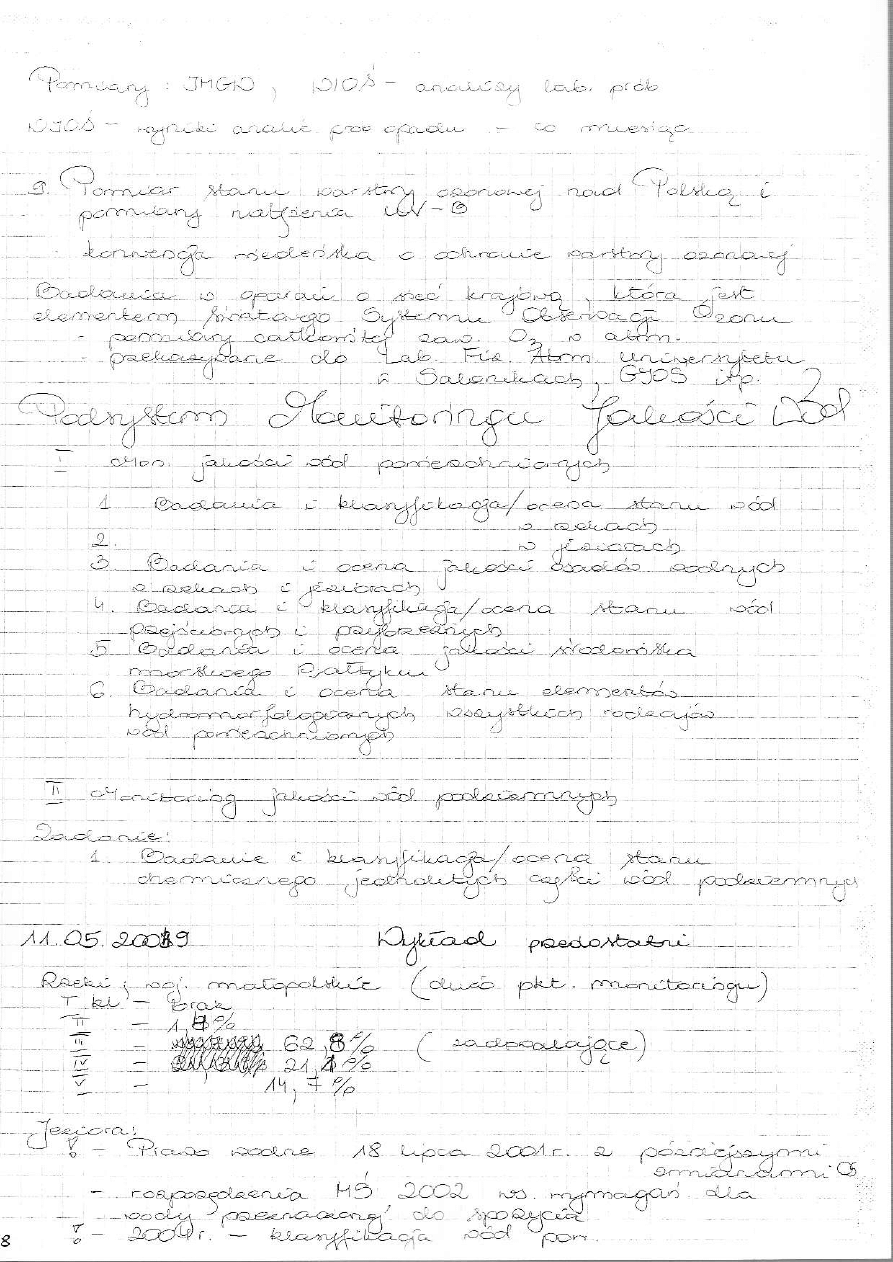 Pomiary : IMGW, WIOŚ - analizy lab. prób
WIOŚ - wyniki analiz prób opadu - co miesiąc
9. Pomiar stanu warstwy ozonowej nad Polską i
pomiary natężenia UV-B
- konwencja wiedeńska o ochronie warstwy ozonowej
Badania w oparciu o sieć krajową, która jest
elementem Światowego Systemu Obserwacji Ozonu
- pomiary całkowitej zaw. O3 w atm.
- przekazywane do Lab. Fiz. Atm Uniwersytetu
w Salonikach, GIOŚ itp.
Podsystem Monitoringu Jakości Wód
I Mon. jakości wód powierzchniowych
1 Badania i klasyfikacja/ocena stanu wód
w rzekach
2. w jeziorach
3 Badania i ocena jakości osadów wodnych
w rzekach i jeziorach
4. Badania i klasyfikacja/ocena stanu wód
przejściowych i przybrzeżnych
5 Badania i ocena jakości środowiska
morskiego Bałtyku
6. Badania i ocena stanu elementów
hydromorfologicznych wszystkich rodzajów
wód powierzchniowych
II Monitoring jakości wód podziemnych
Zadanie:
1. Badanie i klasyfikacja/ocena stanu
chemicznego jednolitych części wód podziemnych
11.05.2009 Wykład przedostatni
Rzeki, woj. małopolskie (dużo pkt. monitoringu)
I kl - Brak
II - 1, %
III - 62,8% (zadowalające)
IV - 21,1%
V - 14,7%
Jeziora:
! - Prawo wodne 18 lipca 2001r. z późniejszymi
zmianami 05
- rozporządzenia MŚ 2002 ws. wymagań dla
wody przeznaczonej do spożycia
! - 2004r. - klasyfikacja wód pow.
8